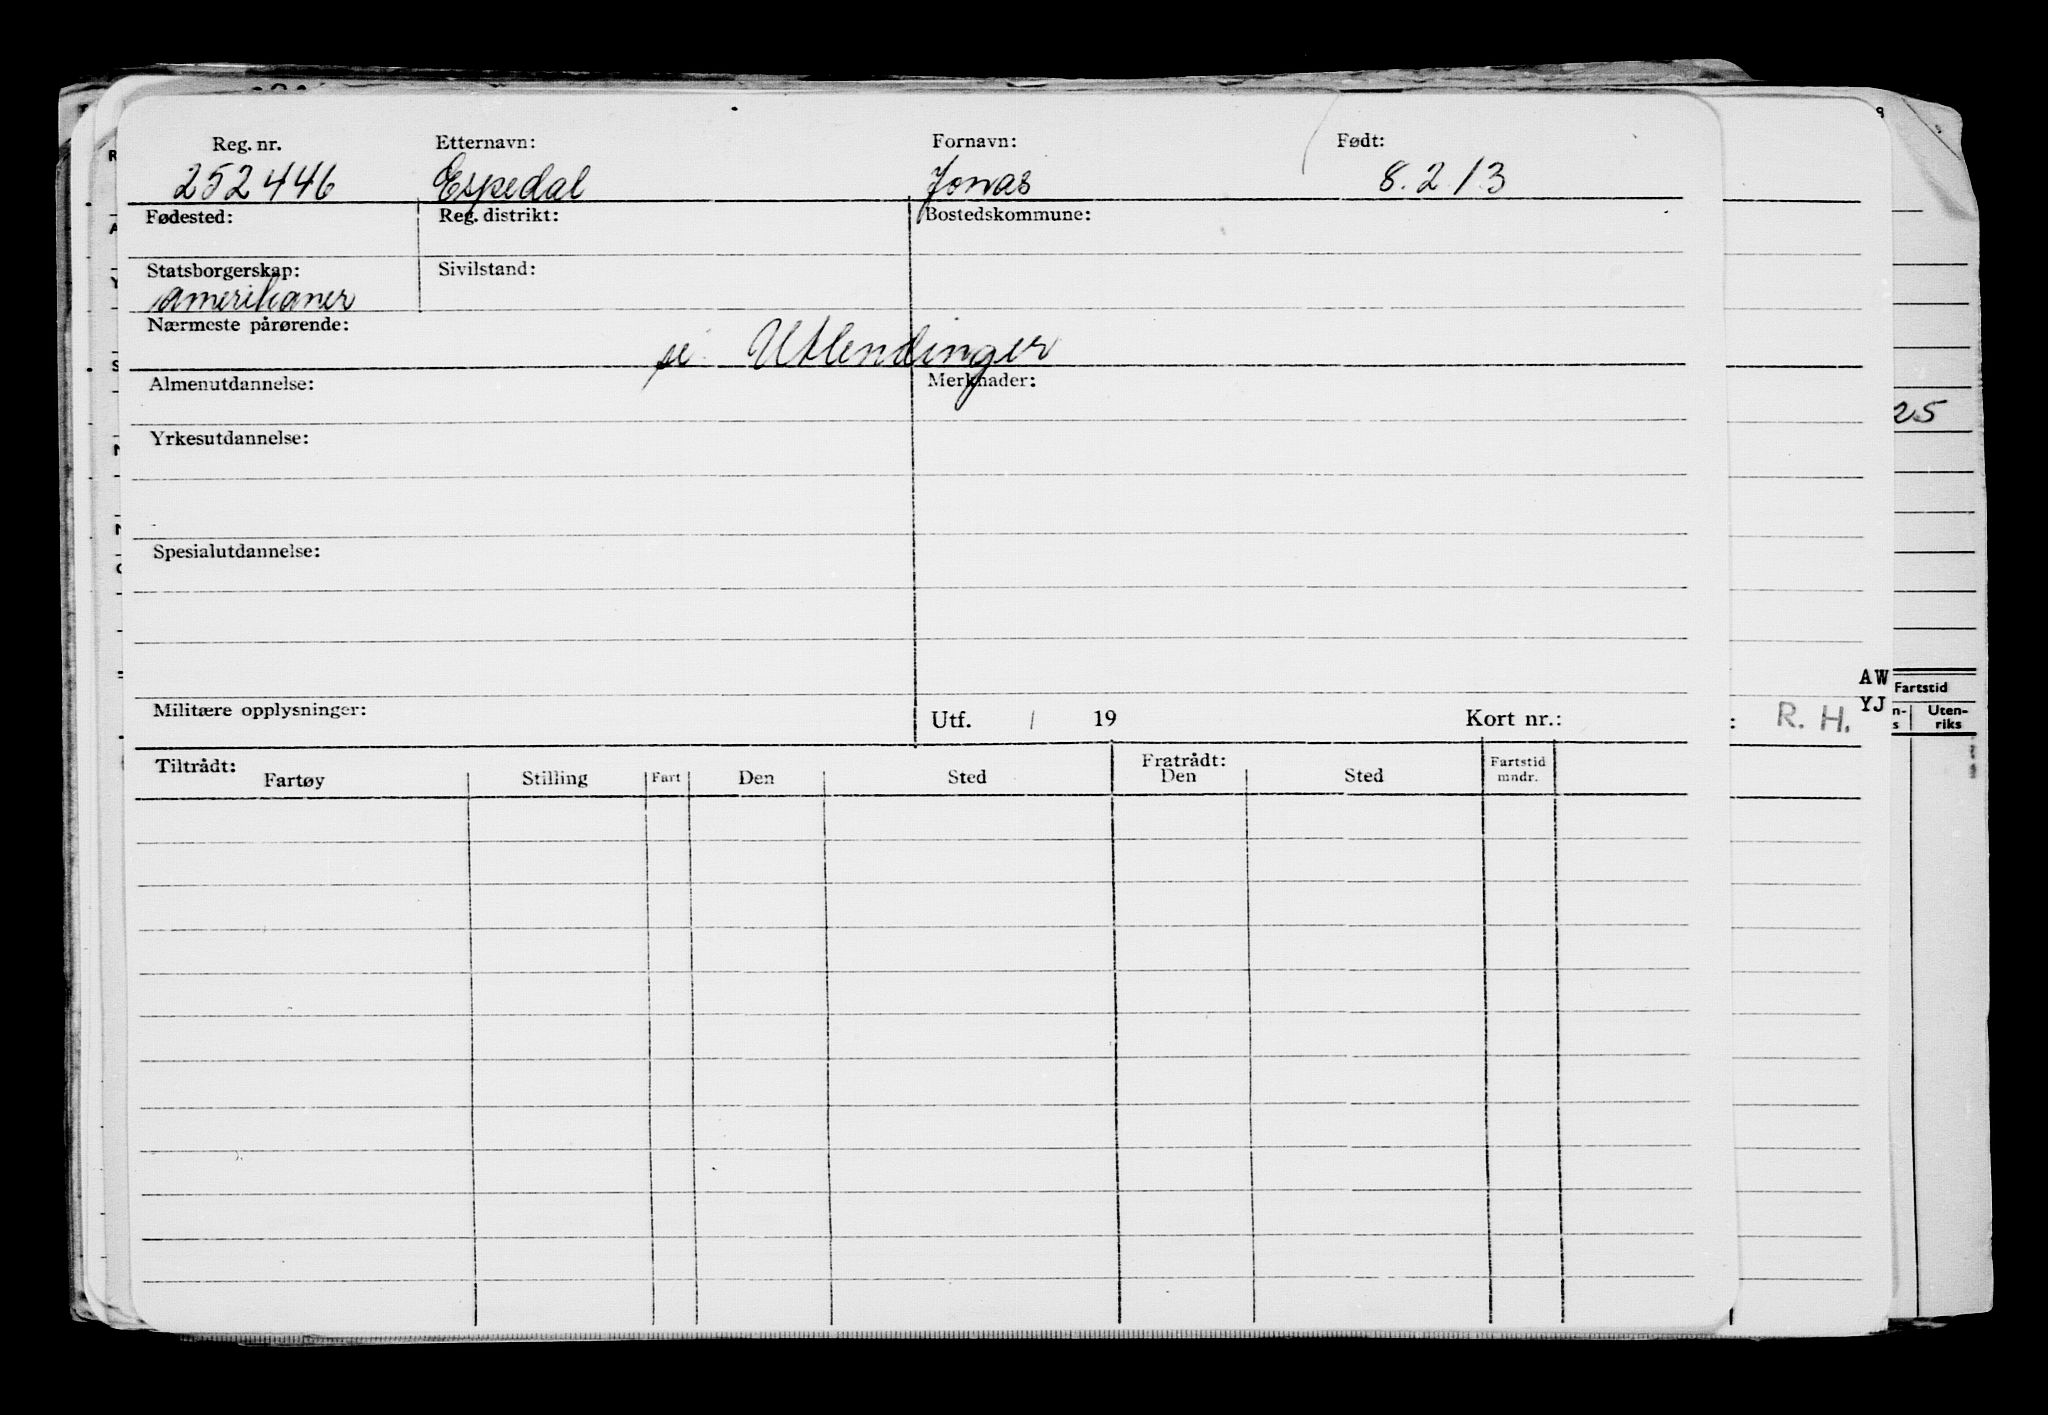 Reg. nr. Etternavn: Fornavn: Født:
252446 Espedal Jonas 8.2.13
Fødested: Reg. distrikt: Bostedskommune:
Statsborgerskap: Sivilstand:
amerikaner
Nærmeste pårørende:
se Utlendinger
Almenutdannelse: Merknader:
25
Yrkesutdannelse:
Spesialutdannelse:
AW
Fartstid
YJ
Militære opplysninger: Utf. / 19 Kort nr.: : R. H.
Uten-
riks
Tiltrådt: Fratrådt: Fartstid
Fartøy Stilling Fart Den Sted Den Sted mndr.